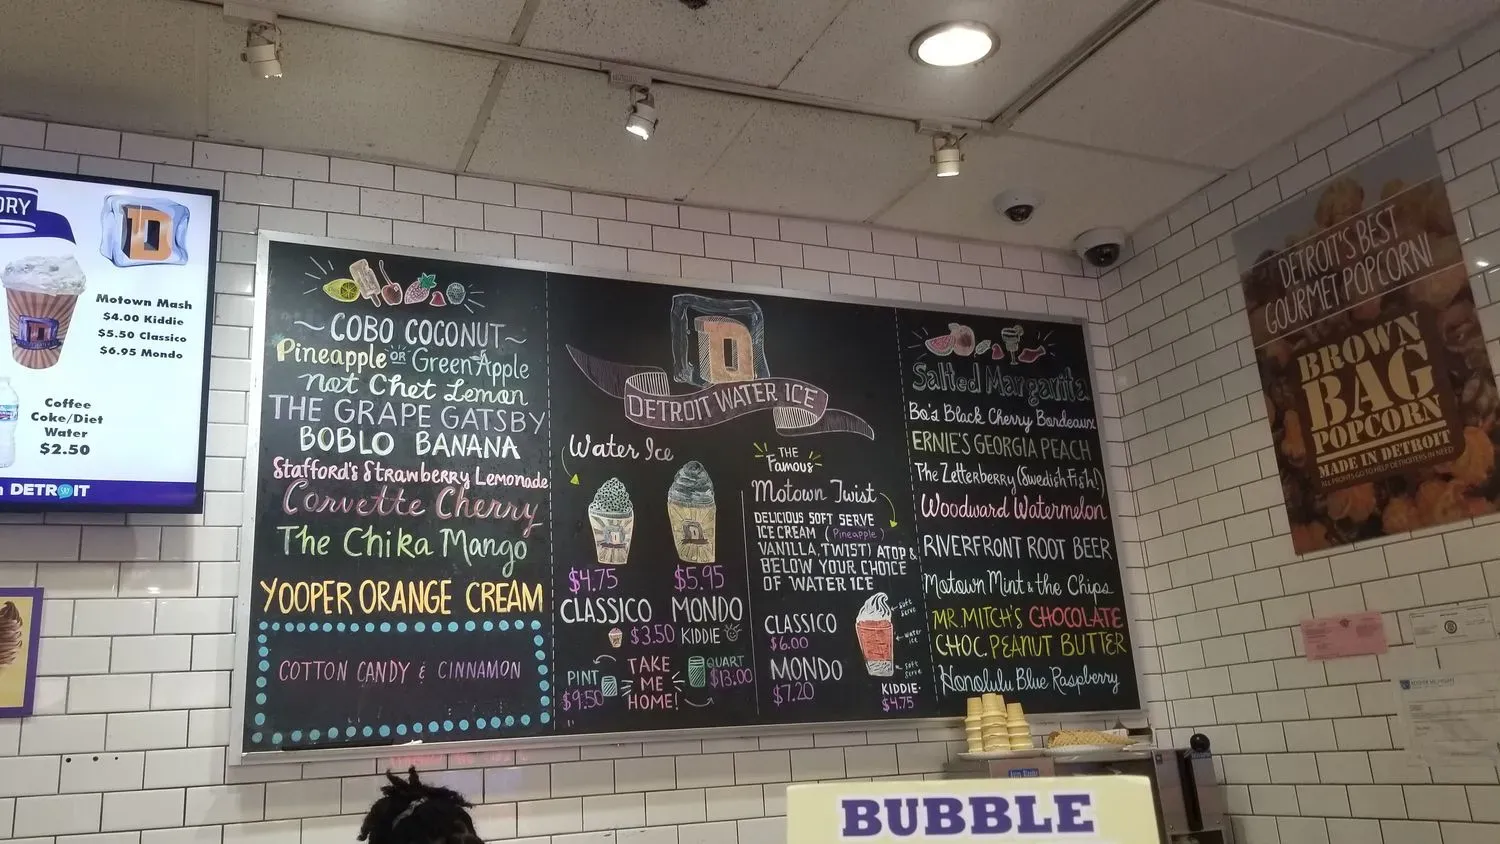 ORY
D
Motown Mash
$4.00 Kiddie
$5.50 Classico
$6.95 Mondo
Coffee
Coke/Diet
Water
$2.50
DETROIT
~COBO COCONUT~
Pineapple OR Green Apple
Not Chet Lemon
THE GRAPE GATSBY
BOBLO BANANA
Stafford's Strawberry Lemonade
Corvette Cherry
The Chika Mango
YOOPER ORANGE CREAM
COTTON CANDY & CINNAMON
D
DETROIT WATER ICE
Water Ice
$4.75
CLASSICO
$5.95
MONDO
$3.50 KIDDIE
PINT
$9.50
TAKE
ME
HOME!
QUART
$13.00
THE
Famous
Motown Twist
DELICIOUS SOFT SERVE
ICE CREAM (Pineapple)
VANILLA, TWIST) ATOP &
BELOW YOUR CHOICE
OF WATER ICE
CLASSICO
$6.00
MONDO
$7.20
Soft
Serve
Water
Ice
Soft
Serve
KIDDIE-
$4.75
Salted Margarita
Bo's Black Cherry Bordeaux
ERNIE'S GEORGIA PEACH
The Zetterberry (Swedish Fish!)
Woodward Watermelon
RIVERFRONT ROOT BEER
Motown Mint & the Chips
MR. MITCH'S CHOCOLATE
CHOC. PEANUT BUTTER
Honolulu Blue Raspberry
DETROIT'S BEST
GOURMET POPCORN!
BROWN
BAG
POPCORN
MADE IN DETROIT
ALL PROFITS GO TO HELP DETROITERS IN NEED!
BUBBLE